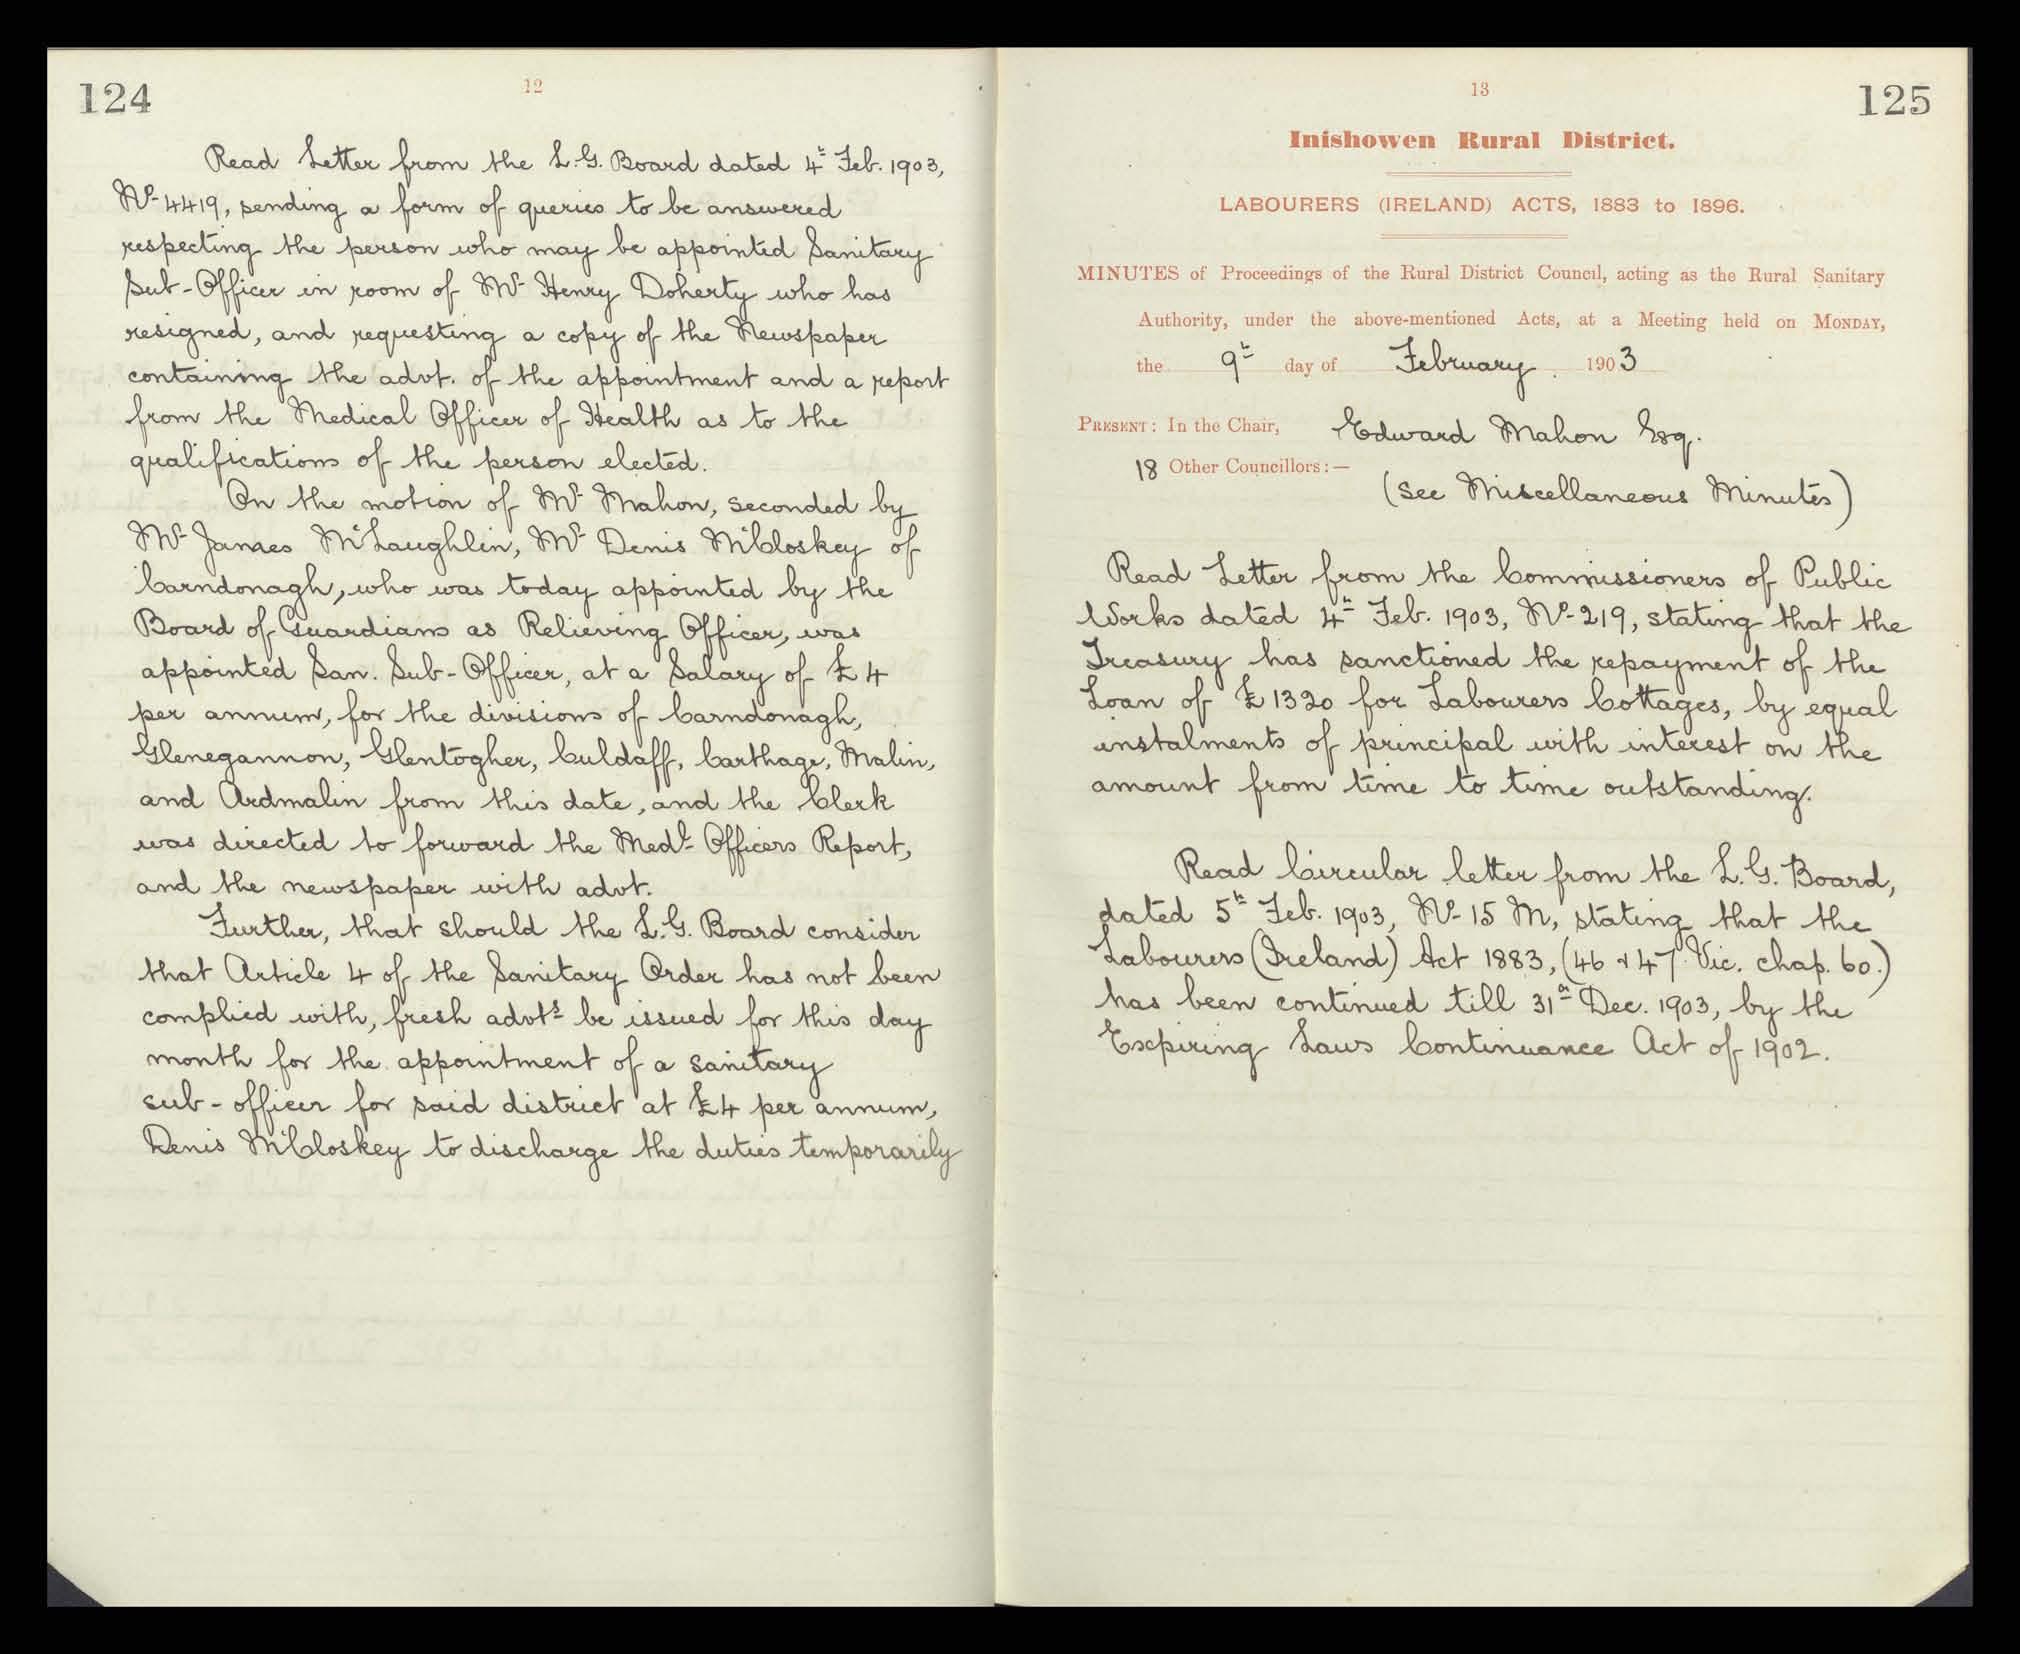 124
12
Read Letter from the L.G. Board dated 4th Feb. 1903,
No 4419, sending a form of queries to be answered
respecting the person who may be appointed Sanitary
Sub-Officer in room of Mr Henry Doherty who has
resigned, and requesting a copy of the Newspaper
containing the advt. of the appointment and a report
from the Medical Officer of Health as to the
qualifications of the person elected.
On the motion of Mr Mahon, seconded by
Mr James McLaughlin, Mr Denis McCloskey of
Carndonagh, who was today appointed by the
Board of Guardians as Relieving Officer, was
appointed San. Sub-Officer, at a Salary of £4
per annum, for the divisions of Carndonagh,
Glenegannon, Glentogher, Culdaff, Carthage, Malin,
and Ardmalin from this date, and the Clerk
was directed to forward the Medl Officers Report,
and the newspaper with advt.
Further, that should the L.G. Board consider
that Article 4 of the Sanitary Order has not been
complied with, fresh advts be issued for this day
month for the appointment of a sanitary
sub-officer for said district at £4 per annum,
Denis McCloskey to discharge the duties temporarily
13
125
Inishowen Rural District.
LABOURERS (IRELAND) ACTS, 1883 to 1896.
MINUTES of Proceedings of the Rural District Council, acting as the Rural Sanitary
Authority, under the above-mentioned Acts, at a Meeting held on MONDAY,
the 9th day of February 1903
PRESENT: In the Chair, Edward Mahon Esq.
18 Other Councillors:—
(See Miscellaneous Minutes)
Read Letter from the Commissioners of Public
Works dated 4th Feb. 1903, No 219, stating that the
Treasury has sanctioned the repayment of the
Loan of £1320 for Labourers Cottages, by equal
instalments of principal with interest on the
amount from time to time outstanding.
Read Circular letter from the L.G. Board,
dated 5th Feb. 1903, No 15 M, stating that the
Labourers (Ireland) Act 1883, (46 & 47 Vic. chap. 60.)
has been continued till 31st Dec. 1903, by the
Expiring Laws Continuance Act of 1902.